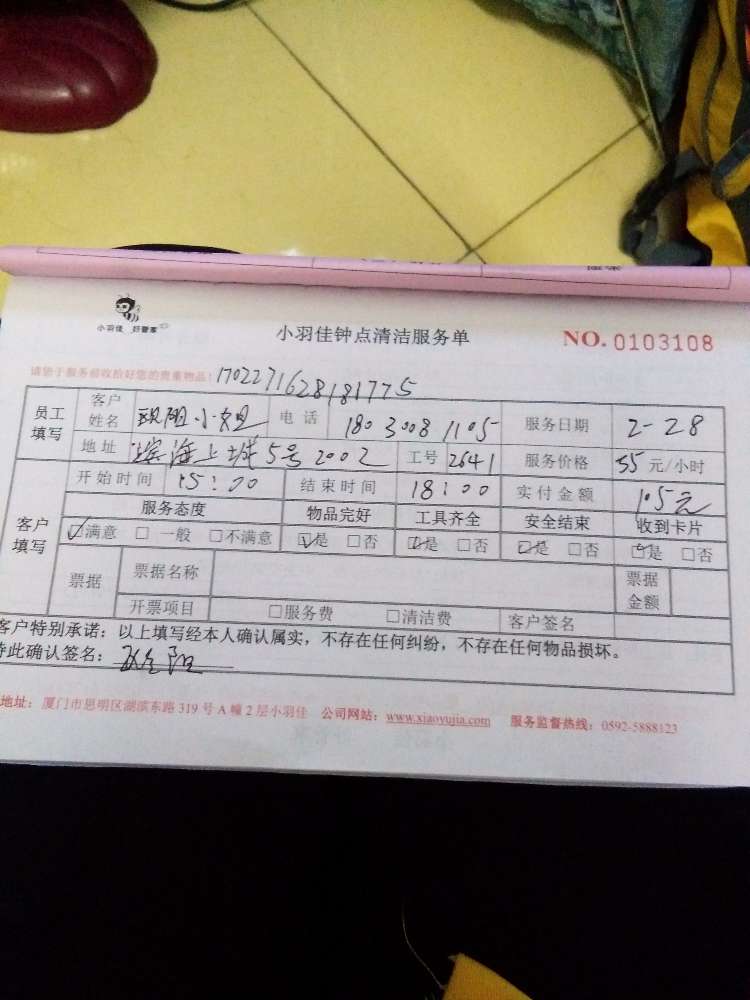 小羽佳 好管家
小羽佳钟点清洁服务单
NO. 0103108
请您于服务前收拾好您的贵重物品! 1702271628181775
员工填写 客户姓名 欧阳小姐 电话 180 3008 1105 服务日期 2-28
地址 滨海上城5号2002 工号 2641 服务价格 35 元/小时
客户填写 开始时间 15:00 结束时间 18:00 实付金额 105元
服务态度 物品完好 工具齐全 安全结束 收到卡片
☑满意 □ 一般 □不满意 ☑是 □否 ☑是 □否 ☑是 □否 ☑是 □否
票据 票据名称 票据金额
开票项目 □服务费 □清洁费 客户签名
客户特别承诺:以上填写经本人确认属实,不存在任何纠纷,不存在任何物品损坏。
特此确认签名:
地址:厦门市思明区湖滨东路 319 号 A 幢 2 层小羽佳 公司网站:www.xiaoyujia.com 服务监督热线:0592-5888123